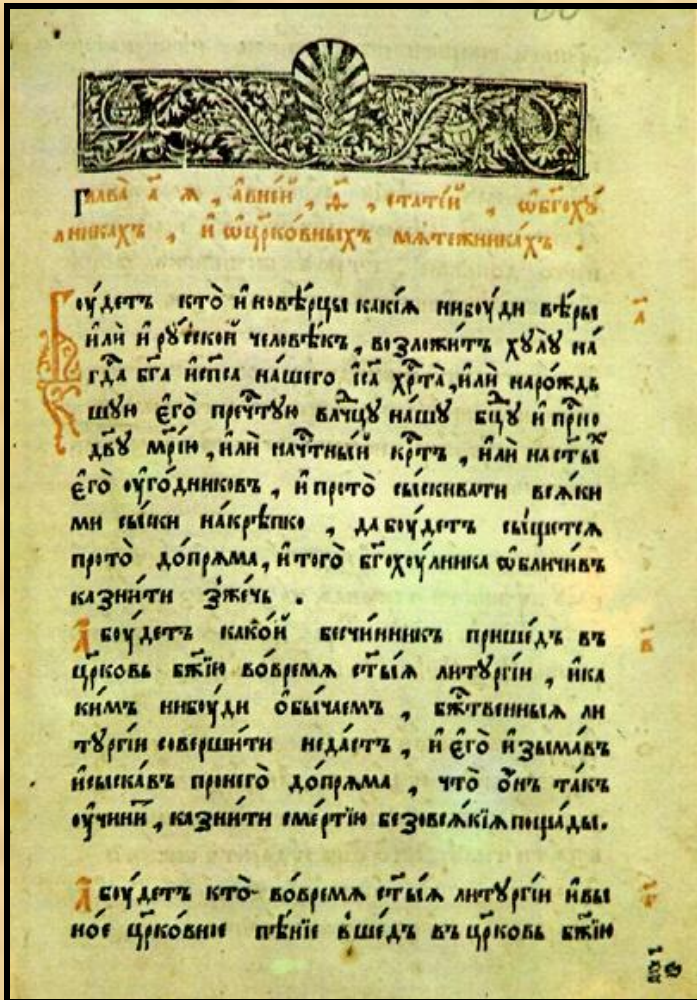 ГлаваҀ а҃ я , а҆вне́й , ѳ҃ , стате́й , ѡ҆бг҃охꙋ́
лникахъ , и҆ ѡ҆цр҃ко́вныхъ мѧте́жникахъ .
Боу́детъ кто̀ и҆нове́рцы какі́ѧ нибоу́ди вѣ́ры
и҆лѝ и҆ рꙋ́сской человѣ́къ , возложи́тъ хꙋлꙋ̀ на́
гд҃а бг҃а и҆сп҃са на́шего і҆с҃а хр҃та̀ , и҆лѝ наро́ждь
шꙋю є҆го̀ пречⷭ҇тꙋю влⷣчцꙋ на́шꙋ бц҃ꙋ и҆ прⷭ҇но
дв҃ꙋ мр҃і́ю , и҆лѝ начⷭ҇тны́й крⷭ҇тъ , и҆лѝ наст҃ы́хъ
є҆го̀ оу҆го́дниковъ , и҆ прото̀ сы́скивати всѧ́ки
ми сы́ски на́крѣпко , да боу́детъ сы́щетсѧ
прото̀ до́прѧма , и҆ того̀ бг҃охоу́лника ѡ҆бличи́въ
казни́ти зже́чь .
А҆ боу́детъ како́й бесчи́нникъ прише́дъ въ
цр҃ковь бж҃їю во́времѧ ст҃ы́ѧ литꙋргі́и , и҆ка
ки́мъ нибоу́ди ѻ҆бы́чаемъ , бжⷭ҇твенныѧ ли
тꙋргі́и соверши́ти неда́стъ , и҆ є҆го̀ и҆зыма́въ
и҆сыска́въ пронего̀ до́прѧма , что̀ ѻ҆́нъ та́къ
оу҆чини́т , казни́ти сме́ртїю безовсѧ́кїѧ поща́ды .
А҆ боу́детъ кто̀ во́времѧ ст҃ы́ѧ литꙋргі́и и҆вы
но́е цр҃ко́вное пѣ́нїе вше́дъ въ цр҃ковь бж҃їю
а҃
в҃
г҃